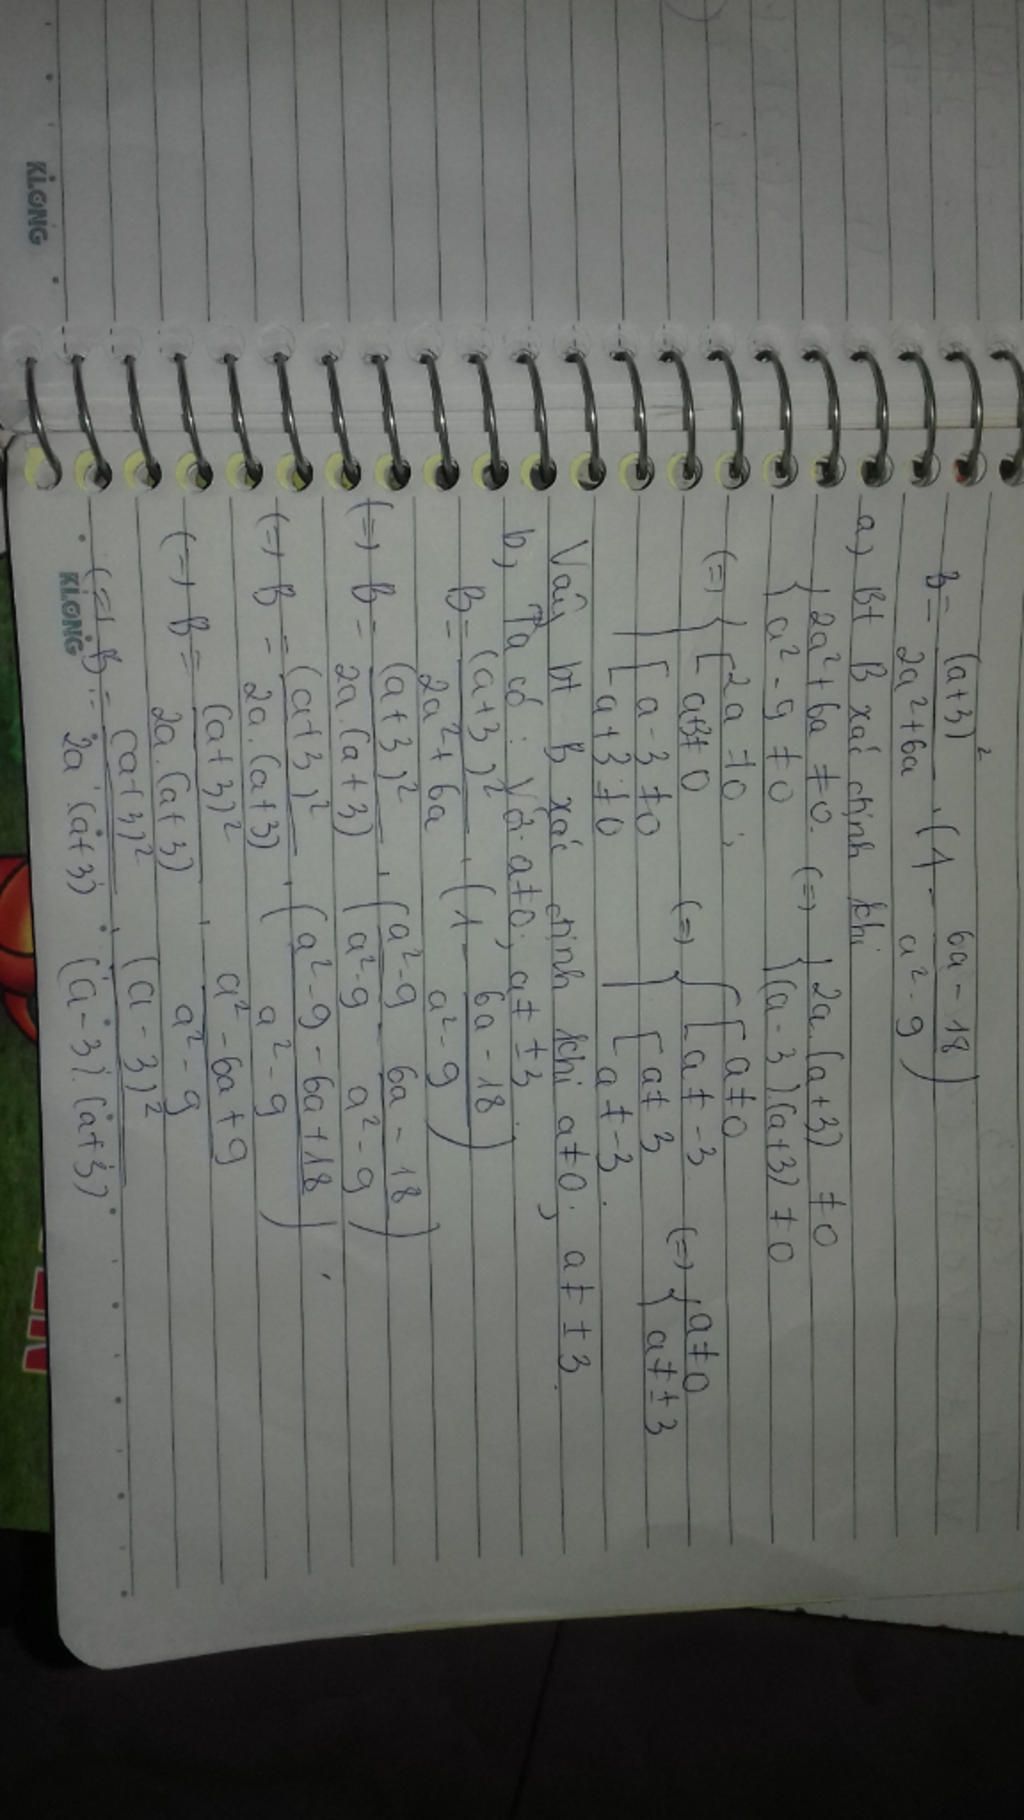 B = (a+3)² / 2a²+6a . (1 - 6a-18 / a²-9)
a) Bt B xác định khi
{ 2a²+6a ≠ 0. (=) { 2a.(a+3) ≠ 0
{ a²-9 ≠ 0 { (a-3).(a+3) ≠ 0
(=) { [ 2a ≠ 0 ; (=) { [ a ≠ 0 (=) { a ≠ 0
[ a+3 ≠ 0 [ a ≠ -3 { a ≠ ±3
[ a-3 ≠ 0 [ a ≠ 3
[ a+3 ≠ 0 [ a ≠ -3.
Vậy bt B xác định khi a ≠ 0; a ≠ ±3.
b, Ta có : Với a ≠ 0; a ≠ ±3
B = (a+3)² / 2a²+6a . (1 - 6a-18 / a²-9)
(=) B = (a+3)² / 2a.(a+3) . (a²-9 / a²-9 - 6a-18 / a²-9)
(=) B = (a+3)² / 2a.(a+3) . (a²-9-6a+18 / a²-9)
(=) B = (a+3)² / 2a.(a+3) . a²-6a+9 / a²-9
(=) B = (a+3)² / 2a.(a+3) . (a-3)² / (a-3).(a+3)
KLONG
KLONG